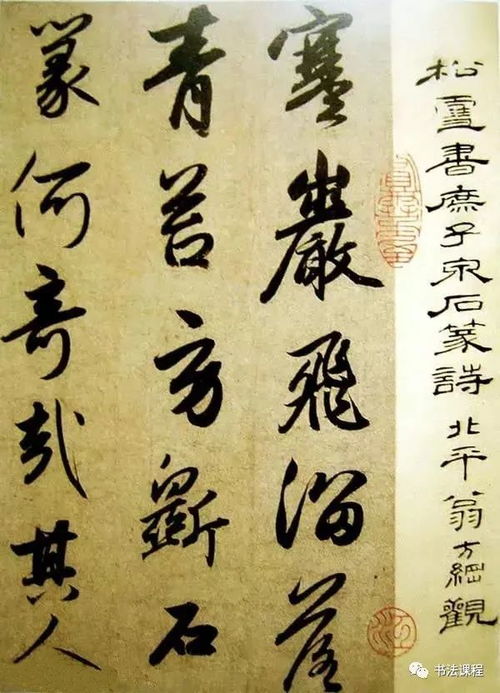 松雪書庶子泉石篆詩 北平翁方綱觀
寒巖飛溜落
青苔旁斲石
篆何奇哉其人
书法课程